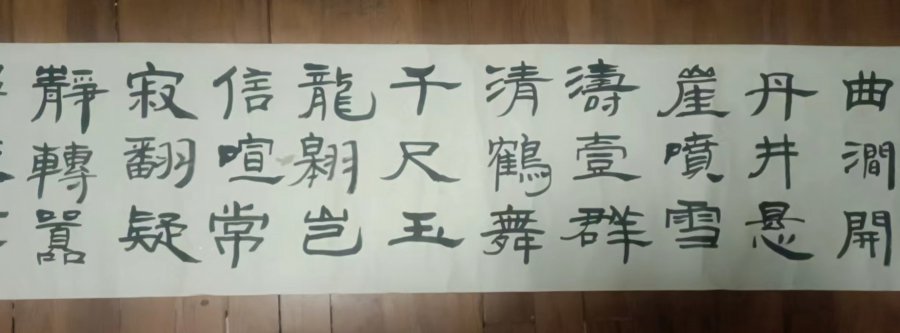 曲澗開
丹井悬
崖噴雪
濤壹群
清鶴舞
千尺玉
龍翱岂
信喧常
寂翻疑
靜轉囂